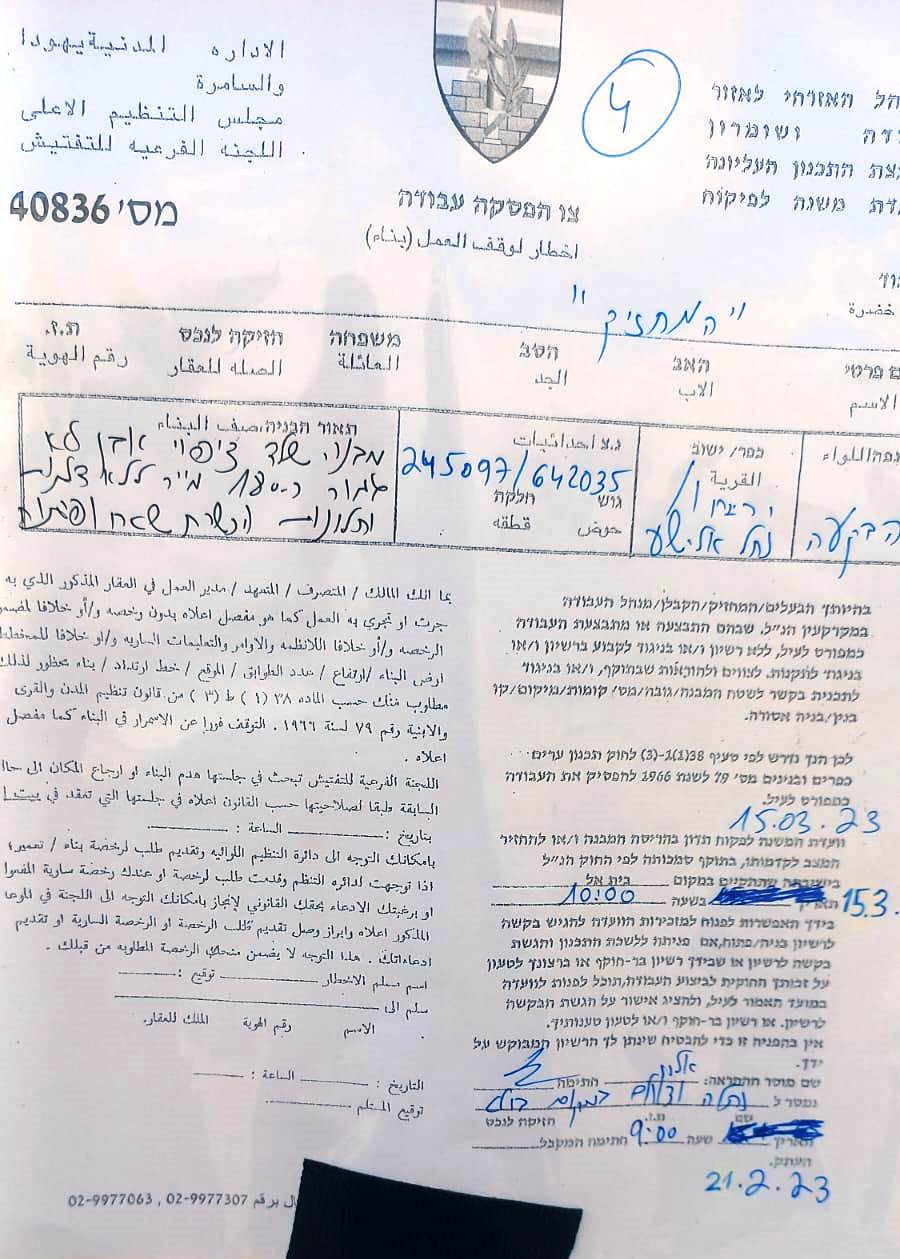 הל האזרחי לאזור
דה ושומרון
צת התכנון העליונה
דת משנה לפיקוח
الاداره المدنية يهودا
والسامرة
مجلس التنظيم الاعلى
اللجنه الفرعيه للتفتيش
4
מס' 40836
צו הפסקה עבודה
اخطار لوقف العمل (بناء)
חضרة
"המחזיק"
ם פרטי
الاسم
האב
الاب
הסב
الجد
משפחה
العائلة
חזיקה לנכס
الصله للعقار
ת.ז.
رقم الهوية
اللواء
הבקעה
כפר/ ישוב
القرية
יריחו/
נחל אלישע
נ.צ احداثيات
245097/642035
גוש חלקה
حوض قطقه
תאור הבניה, صيف البناء
מבנה שלד ציפוי אבן לא
גמור כ-180 מ"ר ללא דלתות
וחלונות
בהיותך הבעלים/המחזיק/הקבלן/מנהל העבודה
במקרקעין הנ"ל, שבהם התבצעה או מתבצעת העבודה
כמפורט לעיל, ללא רשיון ו/או בניגוד לקבוע ברשיון ו/או
בניגוד לתקנות, לצווים ולהוראות שבתוקף, ו/או בניגוד
לתכנית בקשר לשטח המבנה/גובה/מס' קומות/מיקום/קו
בנין/בניה אסורה.
לכן הנך נדרש לפי סעיף 38(1)-(3) לחוק תכנון ערים
כפרים ובנינים מס' 79 לשנת 1966 להפסיק את העבודה
כמפורט לעיל.
15.03.23
וועדת המשנה לפקוח תדון בהריסת המבנה ו/או להחזיר
המצב לקדמותו, בתוקף סמכותה לפי החוק הנ"ל
בישיבתה שתתקיים במקום בית אל
תאריך 15.3. בשעה 10:00
בידך תאפשרות לפנות למזכירות הוועדה להגיש בקשה
לרשיון בניה/פתוח, אם פניתה ללשכת התכנון והגשת
בקשה לרשיון או שבידך רשיון בר-תוקף או ברצונך לטעון
על זכותך החוקית לביצוע העבודה, תוכל לפנות לוועדה
במועד האמור לעיל, ולהציג אישור על הגשת הבקשה
לרשיון. או רשיון בר-תוקף ו/או לטעון טענותיך.
אין בהפניה זו כדי להבטיח שינתן לך הרשיון המבוקש על
ידך.
שם מוסר ההתראה: אלון החתימה
נמסר ל במקום בולט
שם ת.ז. חזיקה לנכס
תאריך שעה 9:00 חתימת המקבל
העתק.
21.2.23
بما انك المالك / المتصرف / المتعهد / مدير العمل في العقار المذكور الذي به
جرت او تجري به العمل كما هو مفصل اعلاه بدون رخصه و/أو خلافا لمضمو
الرخصه و/أو خلافا اللانظمه والاوامر والتعليمات الساريه و/او خلافا للمخطط
ارض البناء /ارتفاع / عدد الطوابق / الموقع / خط ارتداد / بناء محظور لذلك
مطلوب منك حسب الماده ٣٨ (١) ط (٣) من قانون تنظيم المدن والقرى
والابنية رقم ٧٩ لسنة ١٩٦٦. التوقف فورا عن الاسمرار في البناء كما مفصل
اعلاه .
اللجنة الفرعية للتفتيش تبحث في جلستها هدم البناء او ارجاع المكان الى حا
السابقة طبقا لصلاحيتها حسب القانون اعلاه في جلستها التي تعقد في بيت ا
بتاريخ : الساعة :
بامكانك التوجه الى دائرة التنظيم اللوائيه وتقديم طلب لرخصة بناء / تعمير؛
اذا توجهت لدائره التنظم وقدمت طلب لرخصة او عندك رخصة سارية المفعو
او برغبتك الادعاء بحقك القانوني لإنجاز بامكانك التوجه الى اللجنة في الموعا
المذكور اعلاه وابراز وصل تقديم طلب الرخصة او الرخصة السارية او تقديم
ادعاءاتك . هذا التوجه لا يضمن منحك الرخصة المطلوبه من قبلك .
اسم مسلم الاخطار توقيع :
سلم الى
الاسم رقم الهوية الملك للعقار.
التاريخ : الساعة :
توقيع المستلم
ال برقم 02-9977307 , 02-9977063